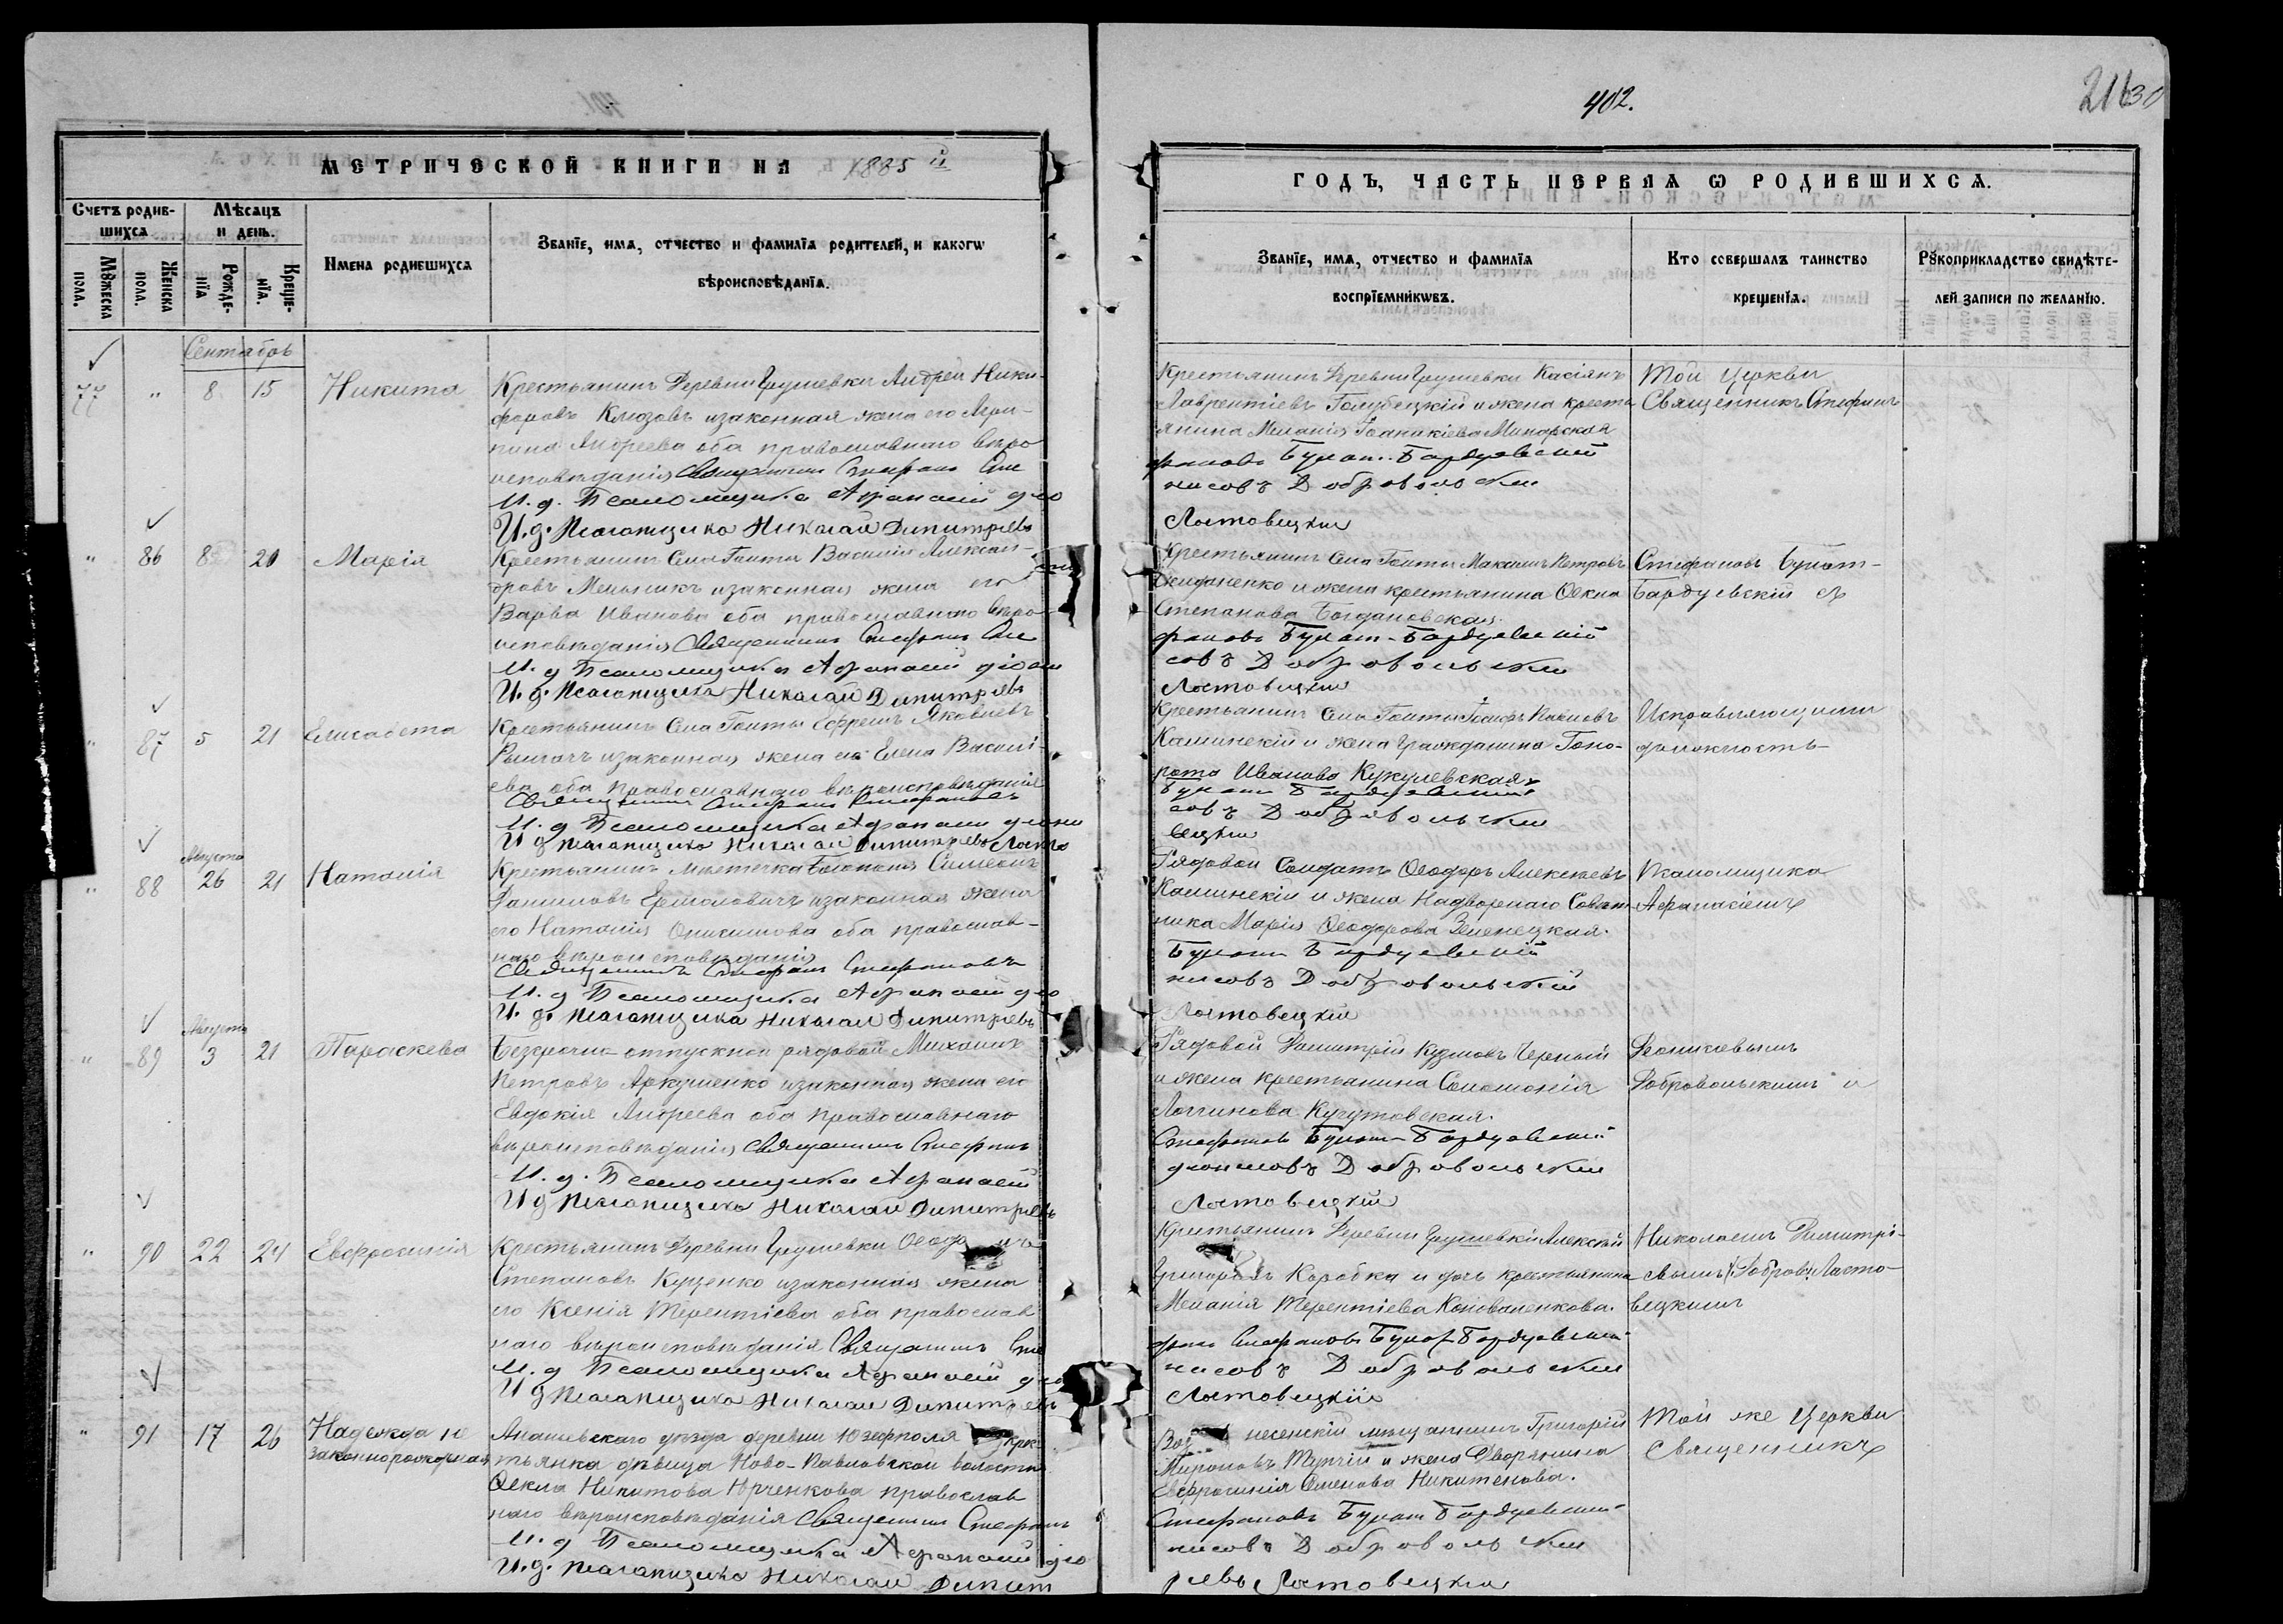 402.
21630
МЕТРИЧЕСКОЙ КНИГИ НА 1885 й
ГОДЪ, ЧАСТЬ ПЕРВАЯ Ѡ РОДИВШИХСЯ.
Счетъ родив-
шихся
Мѣсяцъ
и день.
Имена родившихся
Званїе, имя, отчество и фамилїя родителей, и какогѡ
вѣроисповѣданїя.
Мꙋжеска
пола.
Женска
пола.
Рожде-
нїя
Креще-
нїя.
Званїе, имя, отчество и фамилїя
воспрїемникѡвъ.
Кто совершалъ таинство
крещенїя.
Рꙋкоприкладство свидѣте-
лей записи по желанїю.
Сентябрь
77 " 8 15 Никита
Крестьянинъ Деревни Грушевки Андрей Ники-
форовъ изаконная жена его Агри-
пина Андреева оба православнаго веро
исповѣданія Священникъ Стефанъ Сте
И. д. Псаломщика Афанасій дио
И. д. Псаломщика Николай Димитріевъ
Крестьянинъ Деревни Грушевки Касіянъ
Лаврентіевъ Голубецкій и жена кресть
янина Меланія Іоаникіева
фановъ Булат-Бардуевскій
нисовъ Добровольскій
Лотовецкій
Той Церкви
Священникъ Стефанъ
" 86 8 20 Марія
Крестьянинъ Села Гонты Василій Алексан-
дровъ Мельникъ изаконная жена его
Варва Иванова оба православнаго веро
исповѣданія Священникъ Стефанъ Сте
И. д Псаломщика Афанасій діони
И. д. Псаломщика Николай Димитріевъ
Крестьянинъ Села Гонты Максимъ Петровъ
и жена крестьянина Оекла
Степанова Богдановская
фановъ Булат-Бардуевскій
совъ Добровольскій
Лотовецкій
Стефановъ Булат-
Бардуевскій съ
" 87 5 21 Елисавета
Крестьянинъ Села Гонты Ефремъ Яковлевъ
изаконная жена его Елена Василі-
ева оба православнаго вероисповѣданія
Священникъ Стефанъ Стефановъ
И. д Псаломщика Афанасій диони
И д Псаломщика Николай Димитріевъ Лото
Крестьянинъ Села Гонты Іосифъ Павловъ
Калинскій и жена Гражданина Гоно-
рата Иванова Кукулевская
Булат Бардуевскій
совъ Добровольскій
вецкій
Исправляющими
должность
Августа
" 88 26 21 Наталія
Крестьянинъ мѣстечка Симеонъ
Даниловъ Ермоловичъ изаконная жена
его Наталія Онисимова оба православ-
наго вероисповѣданія
Священникъ Стефанъ Стефановъ
И. д Псаломщика Афанасій дио
И. д. Псаломщика Николай Димитріевъ
Рядовой Солдатъ Оеодоръ Алексеевъ
Калинскій и жена Надворнаго Совет
ника Марія Оеодорова Зеленецкая.
Булатъ Бардуевскій
нисовъ Добровольскій
Лотовецкій
Псаломщика
Афанасіемъ
Августа
" 89 3 21 Параскева
Безсрочно-отпускной рядовой Михаилъ
Петровъ Аркушенко изаконная жена его
Евдокія Андреева оба православнаго
вероисповѣданія Священникъ Стефанъ
И. д. Псаломщика Афанасій
И д Псаломщика Николай Димитріевъ
Рядовой Димитрій Кузмовъ Черный
и жена крестьянина Соломонія
Логинова
Стефановъ Булат-Бардуевскій
дионисовъ Добровольскій
Лотовецкій
Деонисовымъ
Добровольскимъ и
" 90 22 24 Евфросинія
Крестьянинъ Деревни Грушевки
Степановъ Куценко изаконная жена
его Ксенія Терентіева оба православ
наго вероисповѣданія Священникъ Сте
И. д Псаломщика Афанасій дио
И д Псаломщика Николай Димитріевъ
Крестьянинъ Деревни Грушевки Алексій
Григорьевъ Коробка и дочь крестьянина
Меланія Терентіева Коноваленкова.
фанъ Стефановъ Булат-Бардуевскій
нисовъ Добровольскій
Лотовецкій
Николаемъ Димитрі-
евымъ Лото-
вецкимъ
" 91 17 26 Надежда не
законнорожденная
Ананьевскаго уезда деревни Юзефполя крес
тьянка дѣвица Ново-Павловской волости
Оекла Никитова Юрченкова православ
наго вероисповѣданія Священникъ Стефанъ
И. д Псаломщика Афанасій дио
И. д. Псаломщика Николай Димит
Воз несенскій мещанинъ Григорій
Мироновъ и жена Дворянина
Евфросинія Семенова Никитенова.
Стефановъ Булат Бардуевскій
нисовъ Добровольскій
ріевъ Лотовецкій
Той же Церкви
Священникъ